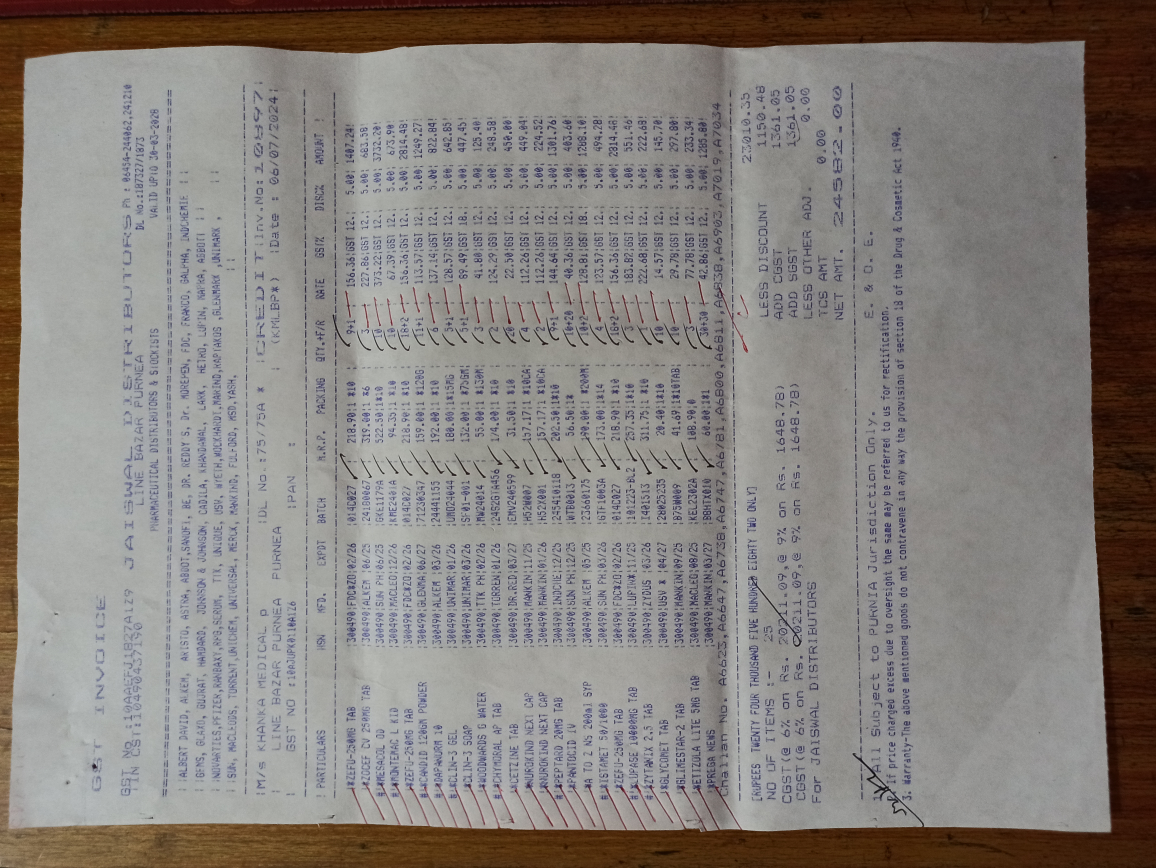 GST INVOICE
GST NO :10AAEFJ1827A1Z9 JAISWAL DISTRIBUTORS : 06454-244062,241210
TIN CST:10490437190 LINE BAZAR PURNEA DL No.:187327/1873
PHARMACEUTICAL DISTRIBUTORS & STOCKISTS VALID UPTO 30-03-2028
ALBERT DAVID, ALKEM, ARISTO, ASTRA, ABBOT,SANOFI, BE, DR. REDDY'S, Dr. MOREPEN, FDC, FRANCO, GALPHA, INDCHEMIE
GERMS, GLAXO, GUJRAT, HAMDARD, JOHNSON & JOHNSON, CADILA, KHANDAWAL, LARK, HETRO, LUPIN, NAPRA, ABBOTT
NOVARTIES,PFIZER,RANBAXY,RPG,SERUM, TTK, UNIQUE, USV, WYETH,WOCKHARDT,MAKIND,HAPTAKOS,GLENMARK,UNIMARK,
SUN, MACLEODS, TORRENT,UNICHEM, UNIVERSAL, MERCK, MANKIND, FULFORD, MSD,YASH,
M/s KHANKA MEDICAL p DL No.:75/75A * CREDIT Inv.No: 10897
LINE BAZAR PURNEA PURNEA (KMLBP*) Date : 06/07/2024
GST NO :10AJUPK0110A1Z6 PAN :
PARTICULARS HSN MFD. EXPDT BATCH M.R.P. PACKING QTY.+F/R RATE GST% DISC% AMOUNT
*ZEFU-250MG TAB 300490 FDC*ZO 02/26 014C027 218.90 1 *10 9+1 156.36 GST 12. 5.00 1407.24
*ZOCEF CV 250MG TAB 300490 ALKEM 06/25 24180067 319.00 1 *6 3 227.86 GST 12. 5.00 683.58
#*MESACOL OD 300490 SUN PH 06/25 GKE1179A 522.50 1*10 10 373.22 GST 12. 5.00 3732.20
#*MONTEMAC L KID 300490 MACLEO 12/26 KME2401A 94.35 1 *10 10 67.39 GST 12. 5.00 673.90
*ZEFU-250MG TAB 300490 FDC*ZO 02/26 014C027 218.90 1 *10 18+2 156.36 GST 12. 5.00 2814.48
#*CANDID 120GM POWDER 300490 GLENMA 06/27 71240347 159.00 1 *120G 11+1 113.57 GST 12. 5.00 1249.27
#*DAPARYM 10 300490 ALKEM 03/26 24441155 192.00 1 *10 6 137.14 GST 12. 5.00 822.84
#*CLIN-3 GEL 300490 UNIMAR 01/26 UMD24044 180.00 1*15MG 5+1 128.57 GST 12. 5.00 642.85
#*CLIN-3 SOAP 300490 UNIMAR 03/26 SF01-001 132.00 1 *75GM 5+1 89.49 GST 18. 5.00 447.45
*WOODWARDS G WATER 300490 TTK PH 02/26 MW24014 55.00 1 *130M 3 41.80 GST 12. 5.00 125.40
*CHYMORAL AP TAB 300490 TORREN 01/26 24S2GTA456 174.00 1 *10 2 124.29 GST 12. 5.00 248.58
*CETZINE TAB 300490 DR.RED 03/27 EMV240599 31.50 1 *10 20 22.50 GST 12. 5.00 450.00
*NUROKIND NEXT CAP 300490 MANKIN 11/25 H52W007 157.17 1 *10CA 4 112.26 GST 12. 5.00 449.04
*NUROKIND NEXT CAP 300490 MANKIN 01/26 H52X001 157.17 1 *10CA 2 112.26 GST 12. 5.00 224.52
#*PEPTARD 20MG TAB 300490 SUN PH 12/25 245410118 202.50 1*10 9+1 144.64 GST 12. 5.00 1301.76
*PANTOCID IV 300490 INDCHE 12/25 WTB0013 56.50 1* 10+20 40.36 GST 12. 5.00 403.60
*A TO Z NS 200ml SYP 300490 ALKEM 03/25 23660175 190.00 1 *200M 10+2 128.81 GST 18. 5.00 1288.10
#*ISTAMET 50/1000 300490 SUN PH 03/26 GTF1003A 173.00 1*14 4 123.57 GST 12. 5.00 494.28
*ZEFU-250MG TAB 300490 FDC*ZO 02/26 014C027 218.90 1 *10 18+2 156.36 GST 12. 5.00 2814.48
#*LUPASE 10000MG TAB 300490 LUPIN* 11/25 101223-BL2 257.35 1*10 3 183.82 GST 12. 5.00 551.46
#*ZYTANIX 2.5 TAB 300490 ZYDUS 03/26 I401513 311.75 1 *10 1 222.68 GST 12. 5.00 222.68
*GLYCOMET TAB 300490 USV * 04/27 28025235 20.40 1*10 10 14.57 GST 12. 5.00 145.70
*GLIMESTAR-2 TAB 300490 MANKIN 09/25 B75W009 41.69 1*10TAB 10 29.78 GST 12. 5.00 297.80
#*ETIZOLA LITE 5MG TAB 300490 MACLEO 08/25 KEL2302A 108.90 3 77.78 GST 12. 5.00 233.34
*PREGA NEWS 300490 MANKIN 03/27 BBHTX010 60.00 1*1 30+30 42.86 GST 12. 5.00 1285.80
Challan No. A6623,A6647,A6738,A6747,A6781,A6800,A6811,A6838,A6903,A7019,A7034
23010.35
[RUPEES TWENTY FOUR THOUSAND FIVE HUNDRED EIGHTY TWO ONLY] LESS DISCOUNT 1150.48
NO OF ITEMS :- 25 ADD CGST 1361.05
CGST(@ 6% on Rs. 20211.09,@ 9% on Rs. 1648.78) ADD SGST 1361.05
CGST(@ 6% on Rs. 20211.09,@ 9% on Rs. 1648.78) LESS OTHER ADJ. 0.00
For JAISWAL DISTRIBUTORS TCS AMT 0.00
NET AMT. 24582.00
1. All Subject to PURNIA Jurisdiction Only. E. & O. E.
2. If price charged excess due to oversight the same may be referred to us for rectification.
3. Warranty-The above mentioned goods do not contravene in any way the provision of section 18 of the Drug & Cosmetic Act 1940.